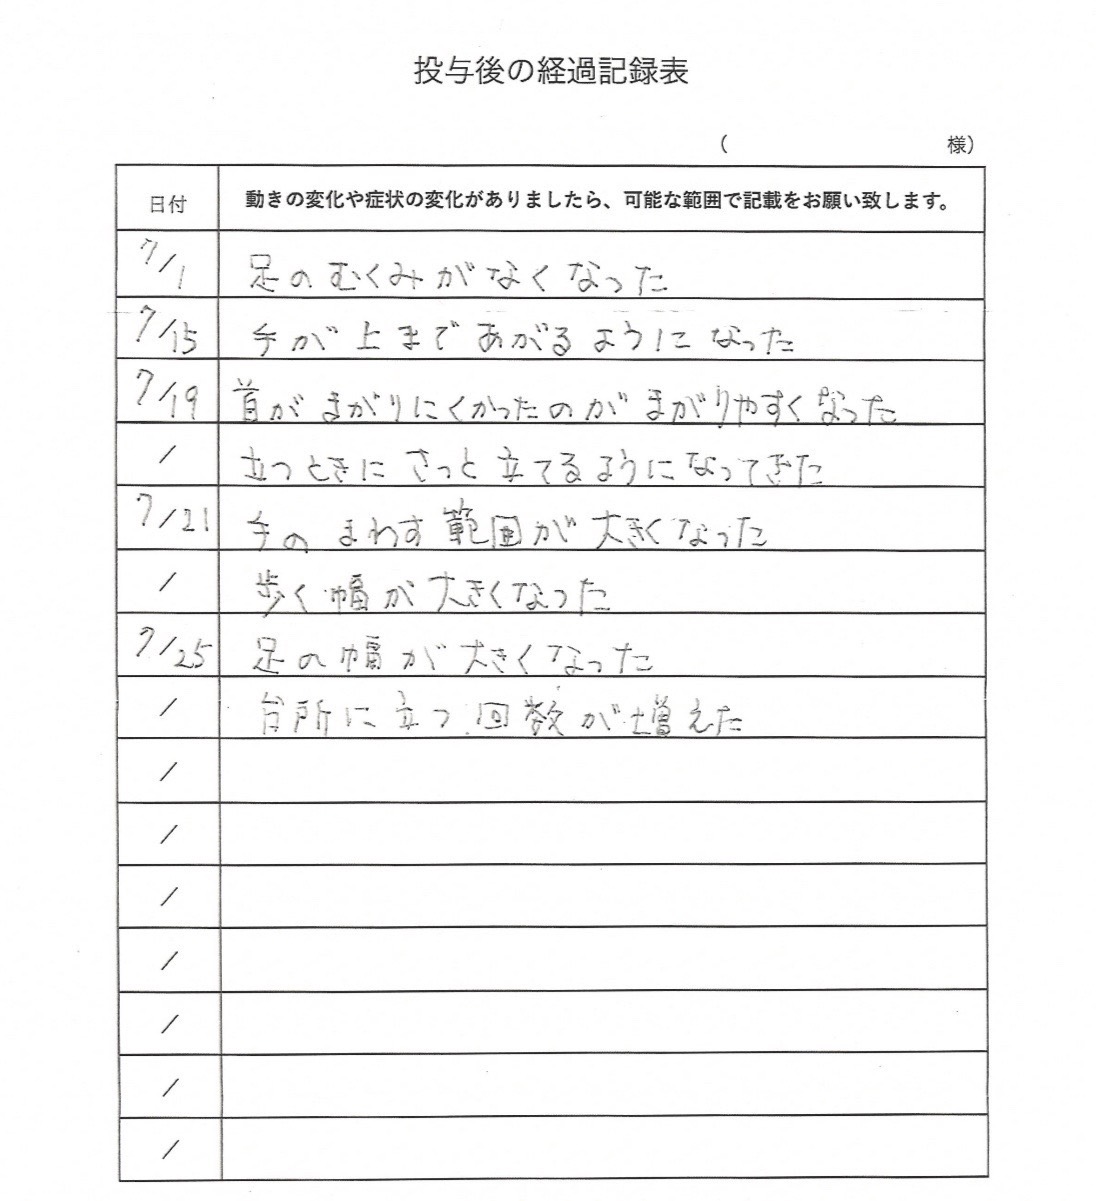 投与後の経過記録表
( 様)
日付 動きの変化や症状の変化がありましたら、可能な範囲で記載をお願い致します。
7/1 足のむくみがなくなった
7/15 手が上まであがるようになった
7/19 首がまがりにくかったのがまがりやすくなった
/ 立つときにさっと立てるようになってきた
7/21 手のまわす範囲が大きくなった
/ 歩く幅が大きくなった
7/25 足の幅が大きくなった
/ 台所に立つ回数が増えた
/
/
/
/
/
/
/